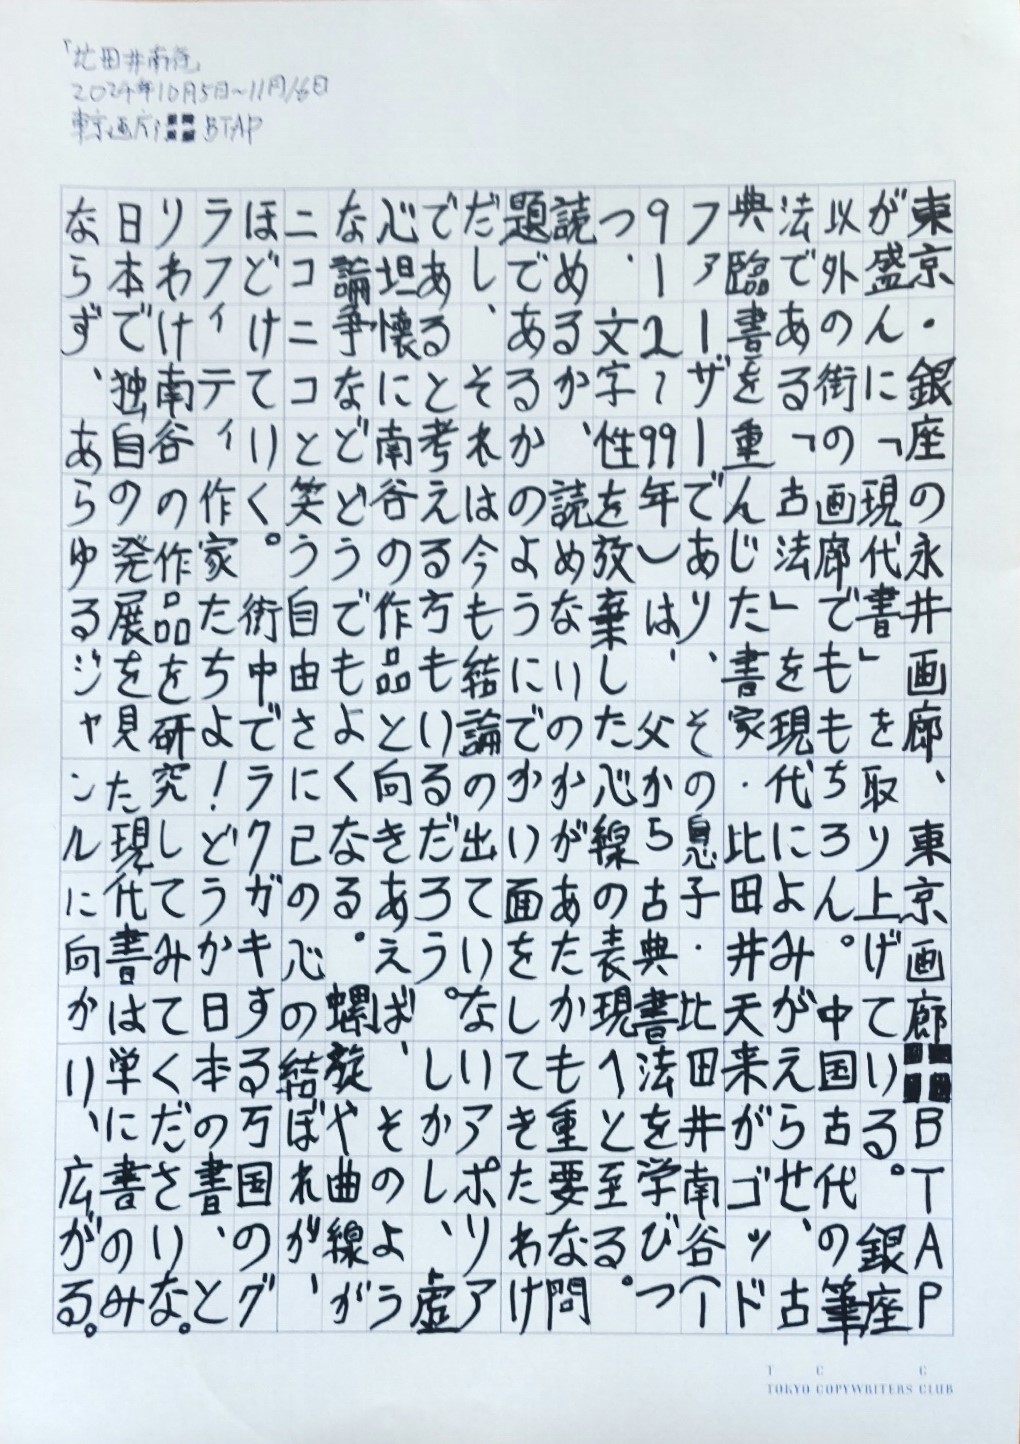 「比田井南谷」
2024年10月5日~11月16日
東京画廊 BTAP
東京・銀座の永井画廊、東京画廊 BTAP
が盛んに「現代書」を取り上げている。銀座
以外の街の画廊でももちろん。中国古代の筆
法である「古法」を現代によみがえらせ、古
典臨書を重んじた書家・比田井天来がゴッド
ファーザーであり、その息子・比田井南谷(1
912~99年)は、父から古典書法を学びつ
つ、文字性を放棄した心線の表現へと至る。
読めるか、読めないのかがあたかも重要な問
題であるかのようにでかい面をしてきたわけ
だし、それは今も結論の出ていないアポリア
であると考える方もいるだろう。しかし、虚
心坦懐に南谷の作品と向きあえば、そのよう
な論争などどうでもよくなる。螺旋や曲線が
ニコニコと笑う自由さに己の心の結ぼれが、
ほどけていく。街中でラクガキする万国のグ
ラフィティ作家たちよ!どうか日本の書、と
りわけ南谷の作品を研究してみてくださいな。
日本で独自の発展を見た現代書は単に書のみ
ならず、あらゆるジャンルに向かい、広がる。
T C C
TOKYO COPYWRITERS CLUB